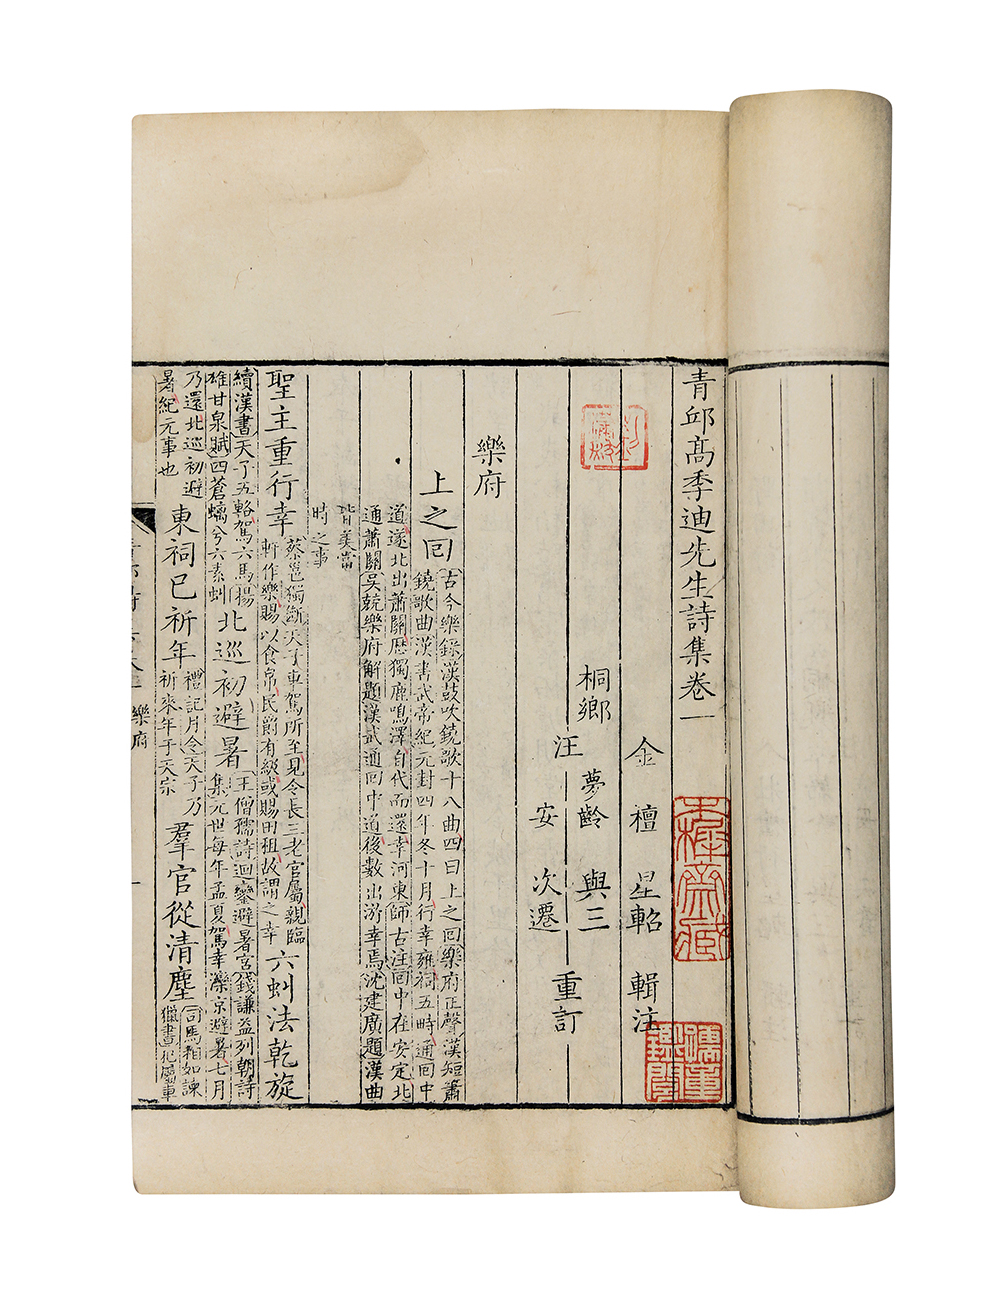 青邱髙季迪先生詩集卷一
金檀星軺輯注
桐鄉
夢齡與三
汪
重訂
安次遷
樂府
上之回
古今樂錄漢鼓吹鐃歌十八曲四曰上之回樂府正聲漢短蕭
鐃歌曲漢書武帝紀元封四年冬十月行幸雍祠五畤通回中
道遂北出蕭關歷獨鹿鳴澤自代而還幸河東師古注回中在安定北
通蕭關吳兢樂府解題漢武通回中道後數出游幸焉沈建廣題漢曲
皆美當
時之事
聖主重行幸
蔡邕獨斷天子車駕所至見令長三老官屬親臨
軒作樂賜以食帛民爵有級或賜田租故謂之幸
六虯法乾旋
續漢書天子五輅駕六馬揚
雄甘泉賦四蒼螭兮六素虯
北巡初避暑
王僧孺詩迴鑾避暑宮錢謙益列朝詩
集元世每年孟夏駕幸灤京避暑七月
乃還北巡初避
暑紀元事也
東祠已祈年
禮記月令天子乃
祈來年于天宗
羣官從清塵
司馬相如諫
獵書犯屬車
樂府
一